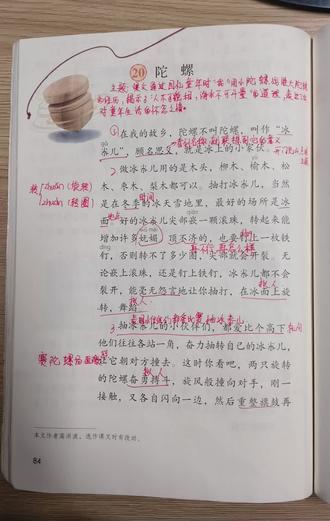 20 陀螺
主题：课文通过回忆童年时“我”用小陀螺战胜大陀螺
的经历，揭示了“人不可貌相，海水不可斗量”的道理，表达作者
对童年生活的怀念之情。
①在我的故乡，陀螺不叫陀螺，叫作“冰
尜儿”，顾名思义，就是冰上的小家伙。
2 做冰尜儿用的是木头，柳木、榆木、松
木、枣木、梨木都可以。抽打冰尜儿，当然
转 zhuàn（旋转）
zhuǎn（转圈）
是在冬季的冰天雪地里，最好的场所是冰
时间
面。好的冰尜儿尖部嵌一颗滚珠，转起来能
地点
增加许多妩媚。顶不济的，也要钉上一枚铁
钉，否则转不了多少图，尖部就会开裂。无
论嵌上滚珠，还是钉上铁钉，冰尜儿都不会
开裂，能毫无怨言地让你抽打，在冰面上旋
拟人
转，舞蹈。
拟人
3 抽冰尜儿的小伙伴们，都爱比个高下。
他们往往各站一角，奋力抽转自己的冰尜儿，
赛陀螺
让它朝对方撞去。这时你看吧，两只旋转
拟人
的陀螺奋勇搏斗，旋风般撞向对手，刚一
接触，又各自闪向一边，然后重整旗鼓再
本文作者高洪波，选作课文时有改动。
84